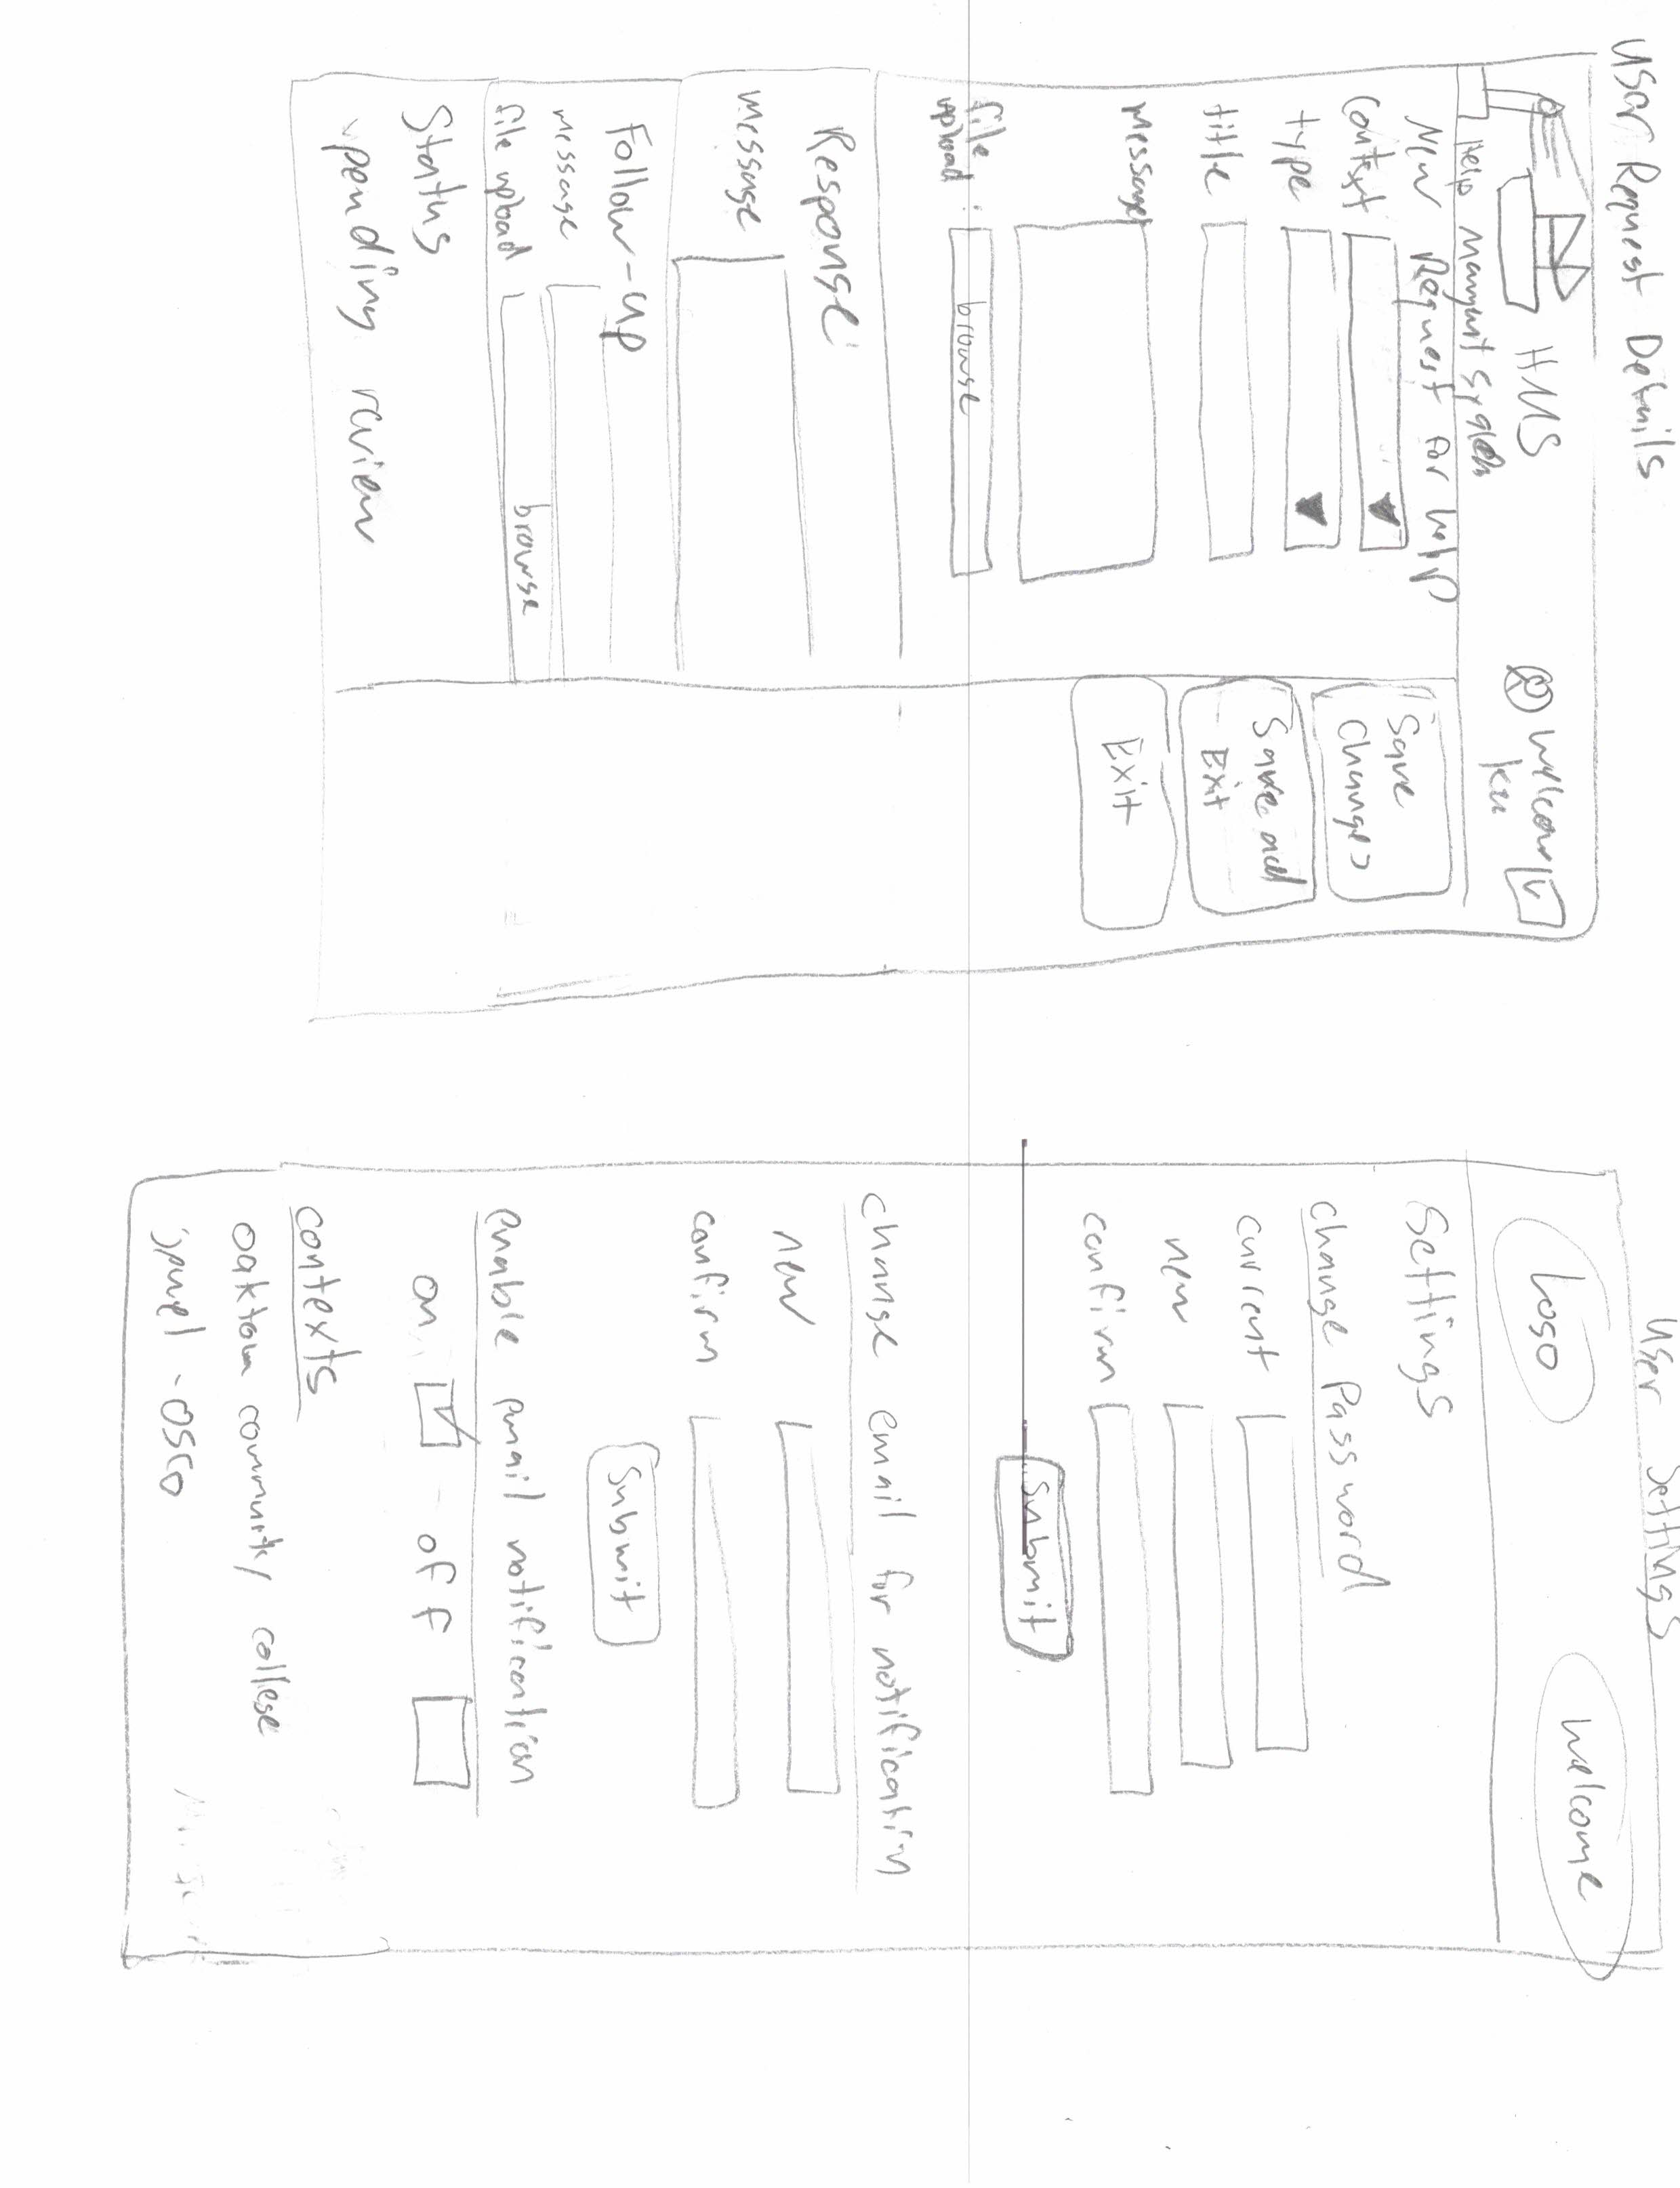 User Request Details
HMS
Welcom
Help Mangmnt System
New Request for help
Context
type
title
Message
file
upload :
browse
Save
Changes
Save and
Exit
Exit
Response
message
Follow-up
message
file upload
browse
Status
pending review
User Settings
Logo
Welcome
Settings
change Password
current
new
confirm
Submit
change email for notification
new
confirm
Submit
enable email notification
on
off
contexts
oakton community college
jewel - osco